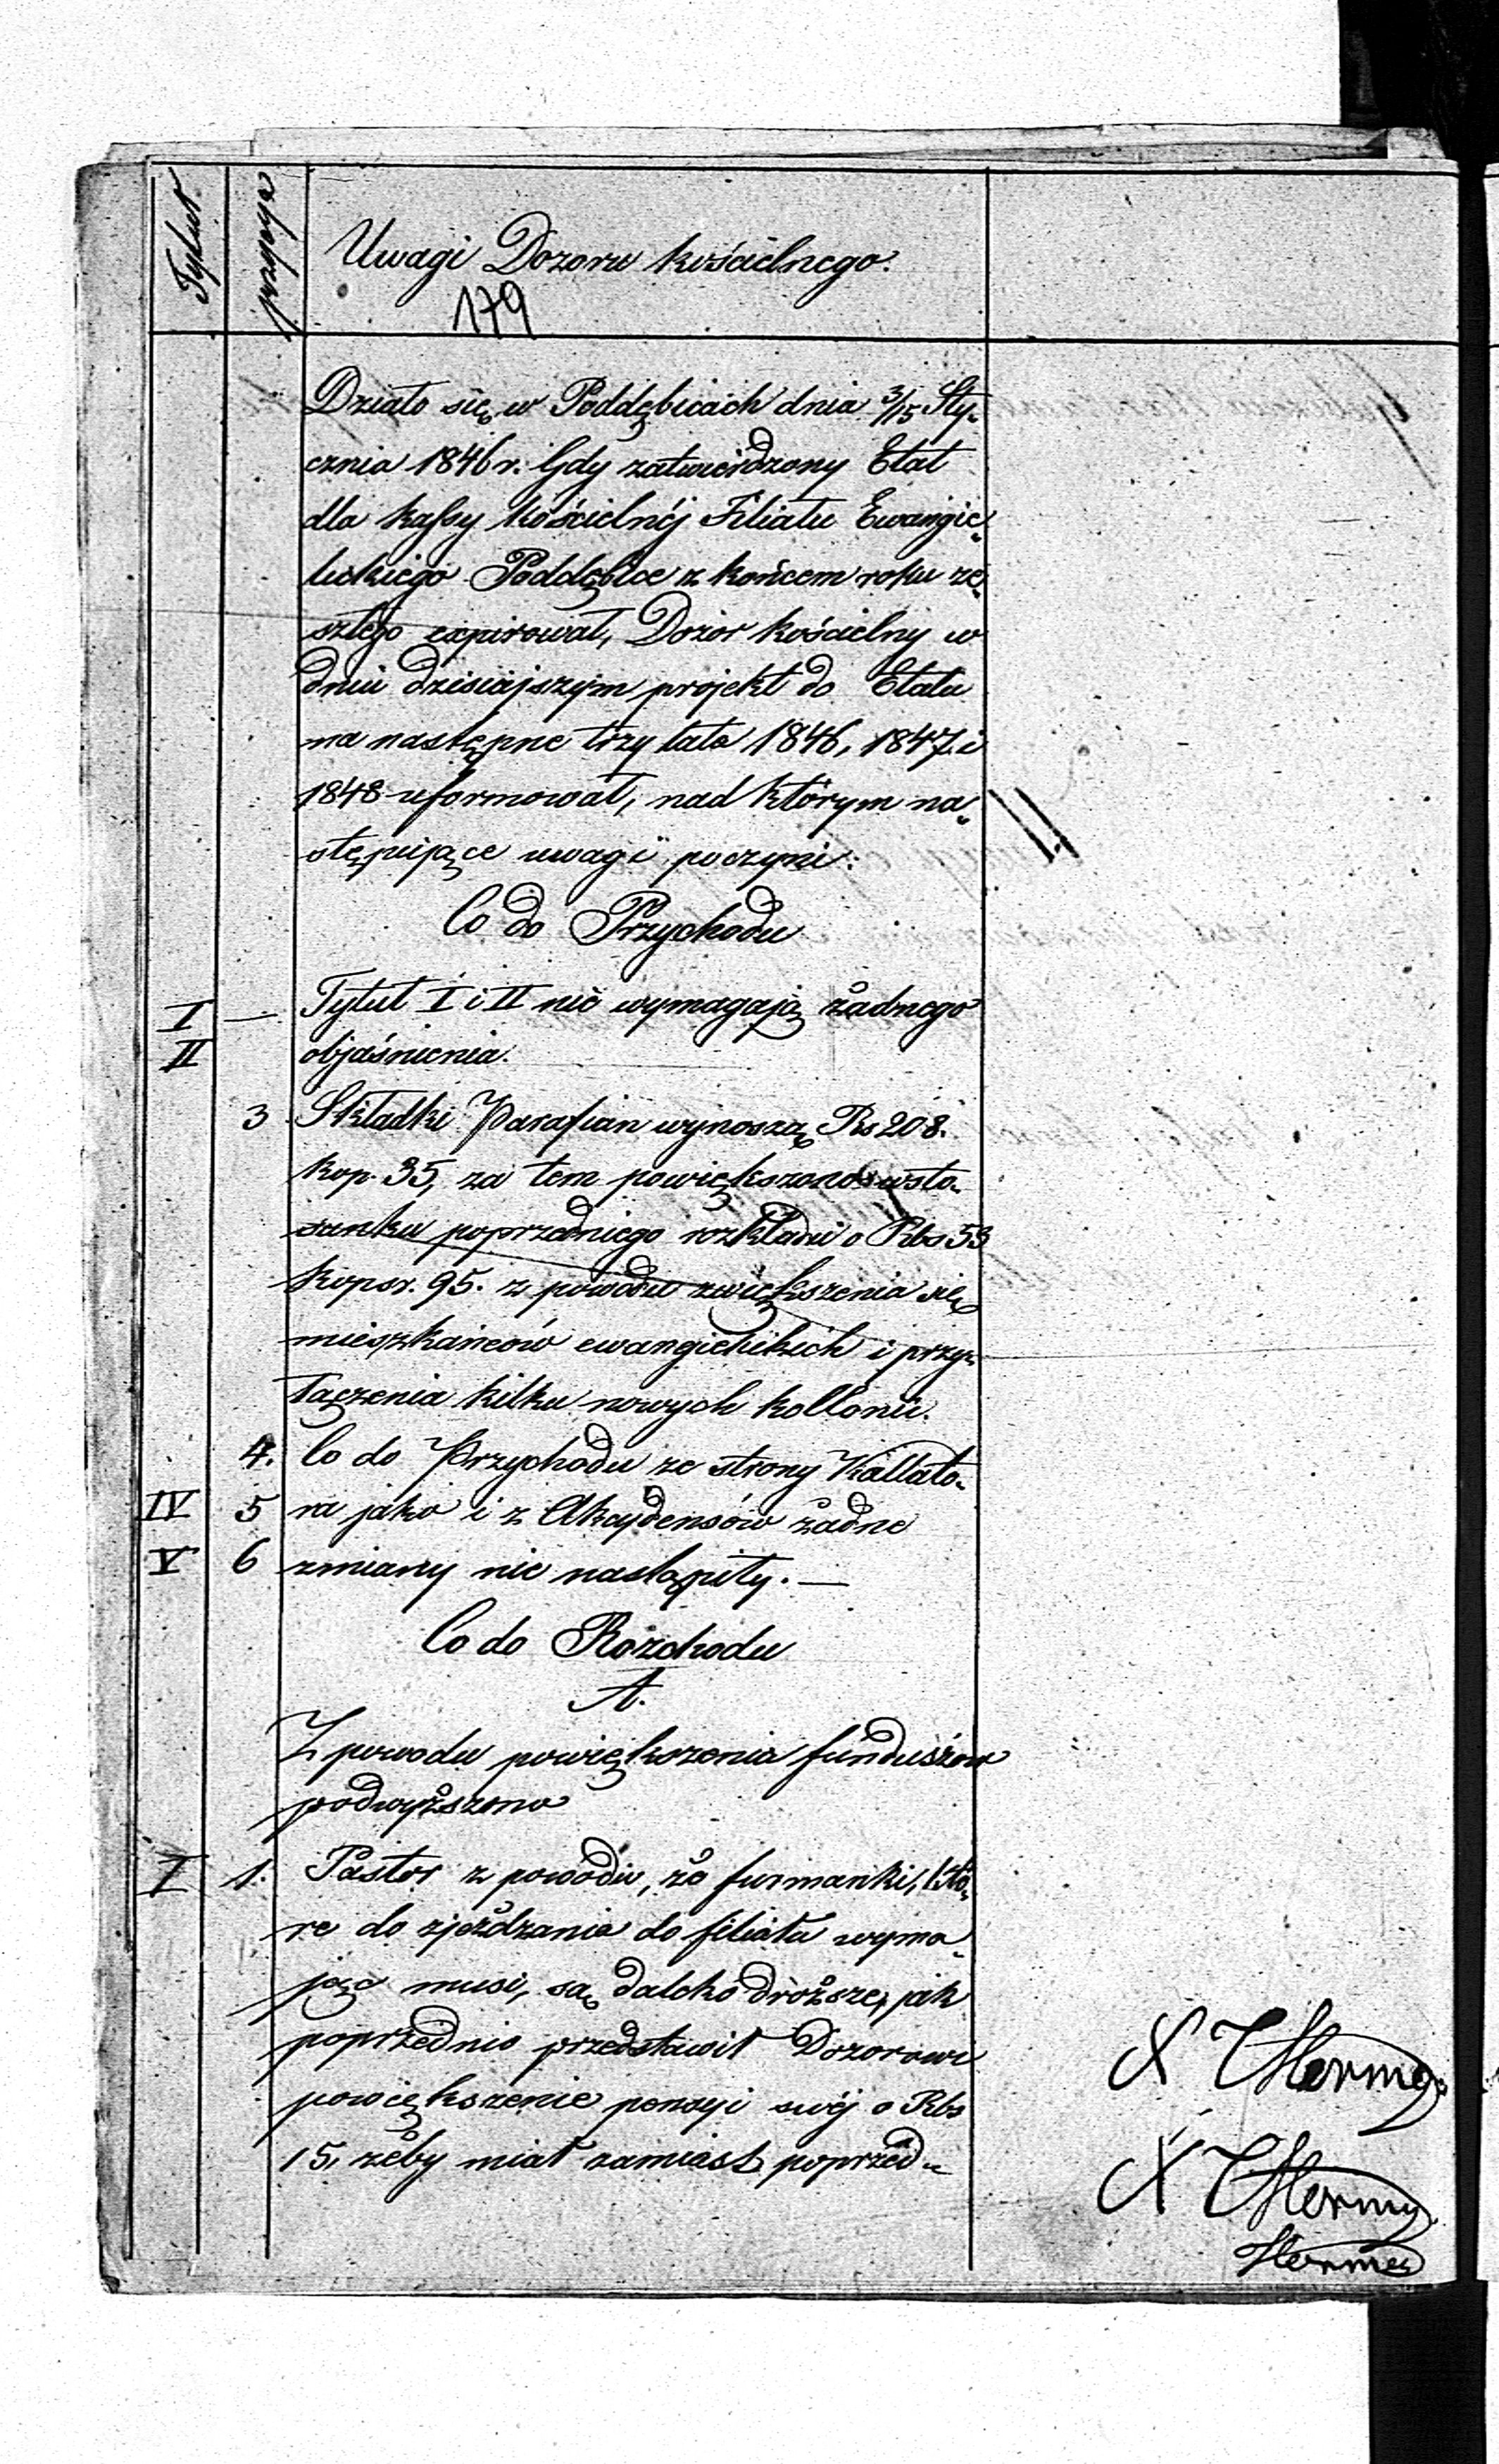 Tytuł pozycya Uwagi Dozoru kościelnego.
179
Działo się w Poddębicach dnia 3/15 Sty-
cznia 1846 r. Gdy zatwierdzony Etat
dla kassy kościelnéj Filiału Ewangie-
lickiego Poddębice z końcem roku ze-
szłego expirował, Dozór kościelny w
dniu dzisiajszym projekt do Etatu
na następne trzy lata 1846, 1847 i
1848 uformował, nad którym na-
stępujące uwagi poczyni:
Co do Przychodu
I — Tytuł I i II nie wymagają żadnego
II objaśnienia.
3 Składki Parafian wynoszą Rs 208.
kop. 35, za tem powiększono w sto-
sunku poprzedniego rozkładu o Rbs 53
kop sr. 95. z powodu zwiększenia się
mieszkańców ewangielickich i przy-
łączenia kilku nowych kollonii.
4. Co do Przychodu ze strony Kollato-
IV 5 ra jako i z Akcydensów żadne
V 6 zmiany nie nastąpiły. —
Co do Rozchodu
A.
Z powodu powiększenia funduszów
podwyższono
I 1. Pastor z powodu, że furmanki, któ-
re do zjeżdzania do filiału wyma-
jąc musi, są daleko droższe, jak
poprzednio przedstawił Dozorowi
powiększenie pensyi swéj o Rbs
15, żeby miał zamiast poprzed-
X Hermes
X Hermes
Hermes